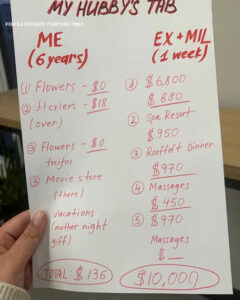 MY HUBBY'S TAB
FOR ILLUSTRATE PURPOSE ONLY
ME
(6 years)
① Flowers - $0
② - $18
(over)
③ Flowers - $0
③ Movie store
vacations
(mother night
giff)
TOTAL: $136
EX + MIL
(1 week)
① $6,800
$ 680
② Spa Resort
$950
③ Dinner
$970
④ Massages
$ 450
⑤ $970
Massages
$
$10,000